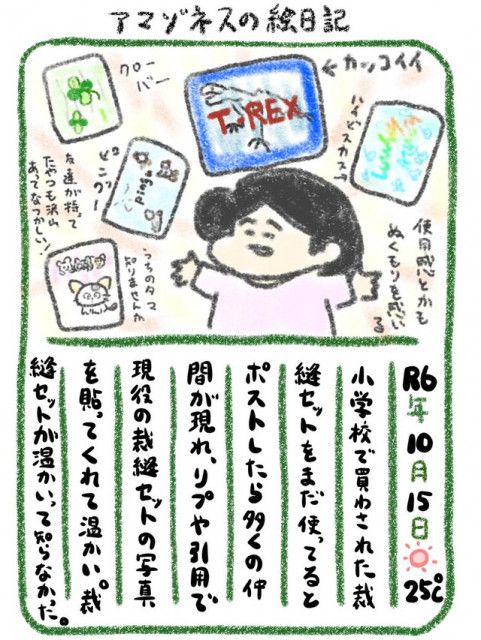 アマゾネスの絵日記
クローバー
T-REX
←カッコイイ
ハイビスカス
ピングー
pingu
友達が持って
たやつも沢山
あってなつかしい!
うちのタマ
知りませんか
使用感とかも
ぬくもりを感じ
る
R6年10月15日 25℃
小学校で買わされた裁
縫セットをまだ使ってると
ポストしたら多くの仲
間が現れ、リプや引用で
現役の裁縫セットの写真
を貼ってくれて温かい。裁
縫セットが温かいって知らなかった。